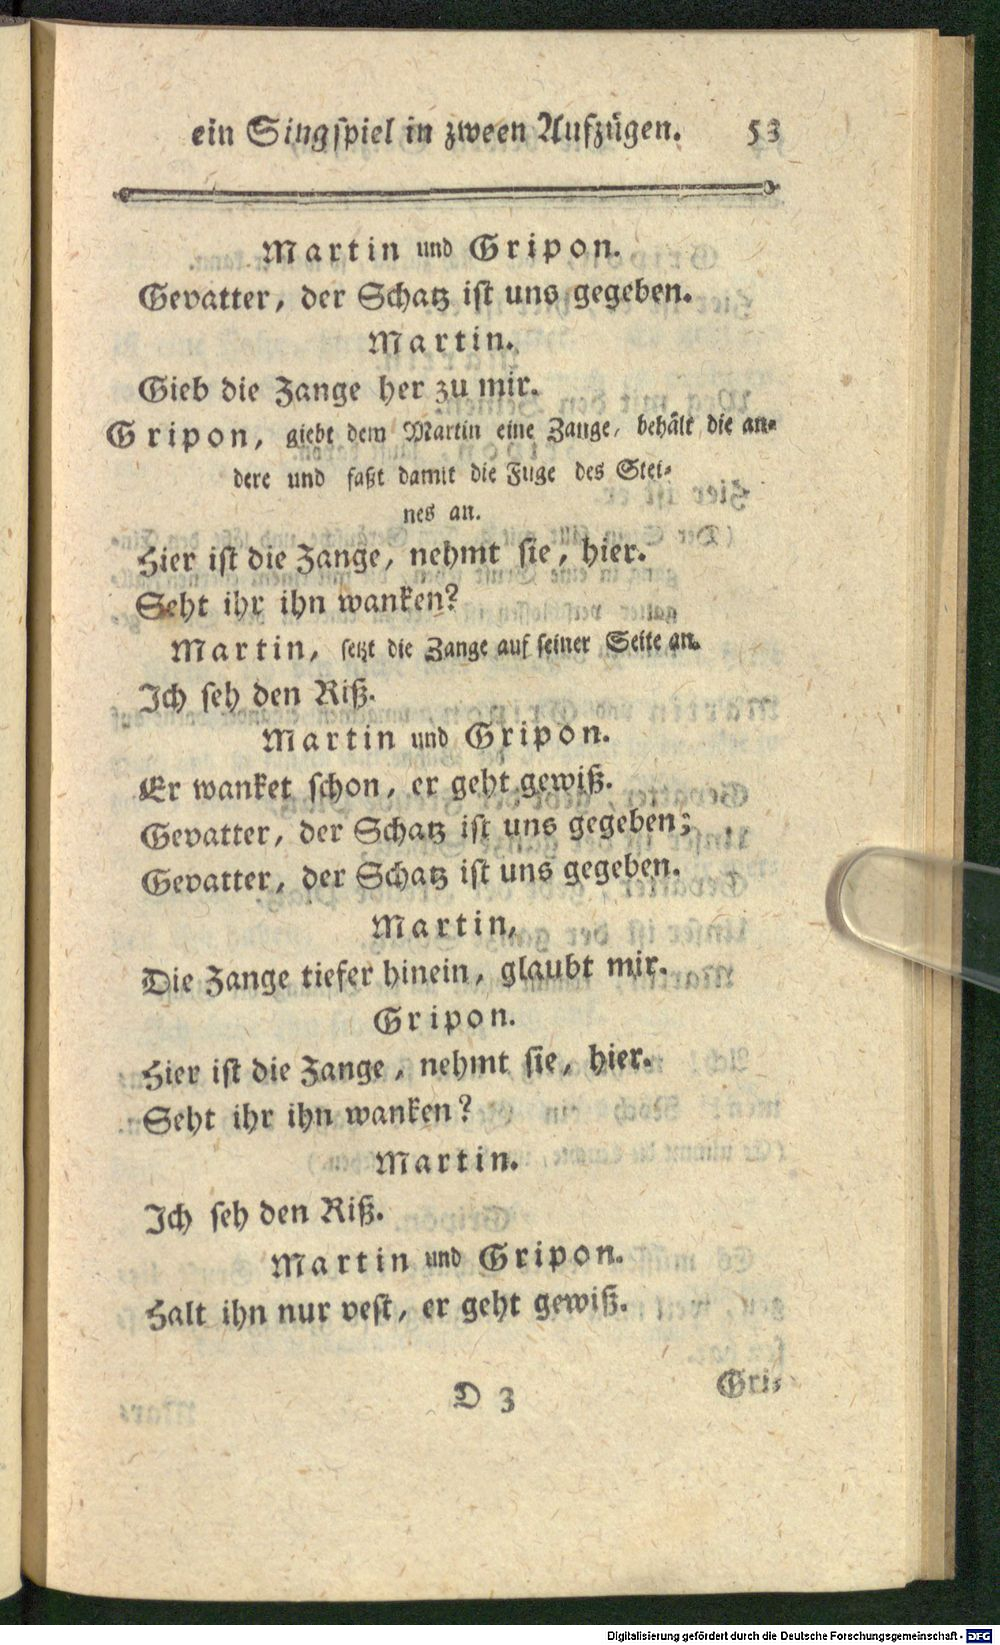 ein Singſpiel in zween Aufzügen. 53
Martin und Gripon.
Gevatter, der Schatz iſt uns gegeben.
Martin.
Gieb die Zange her zu mir.
Gripon, giebt dem Martin eine Zange, behält die an-
dere und faßt damit die Fuge des Stei-
nes an.
Hier iſt die Zange, nehmt ſie, hier.
Seht ihr ihn wanken?
Martin, ſetzt die Zange auf ſeiner Seite an.
Ich ſeh den Riß.
Martin und Gripon.
Er wanket ſchon, er geht gewiß.
Gevatter, der Schatz iſt uns gegeben;
Gevatter, der Schatz iſt uns gegeben.
Martin,
Die Zange tiefer hinein, glaubt mir.
Gripon.
Hier iſt die Zange, nehmt ſie, hier.
Seht ihr ihn wanken?
Martin.
Ich ſeh den Riß.
Martin und Gripon.
Halt ihn nur veſt, er geht gewiß.
D 3 Gri-
Digitalisierung gefördert durch die Deutsche Forschungsgemeinschaft - DFG